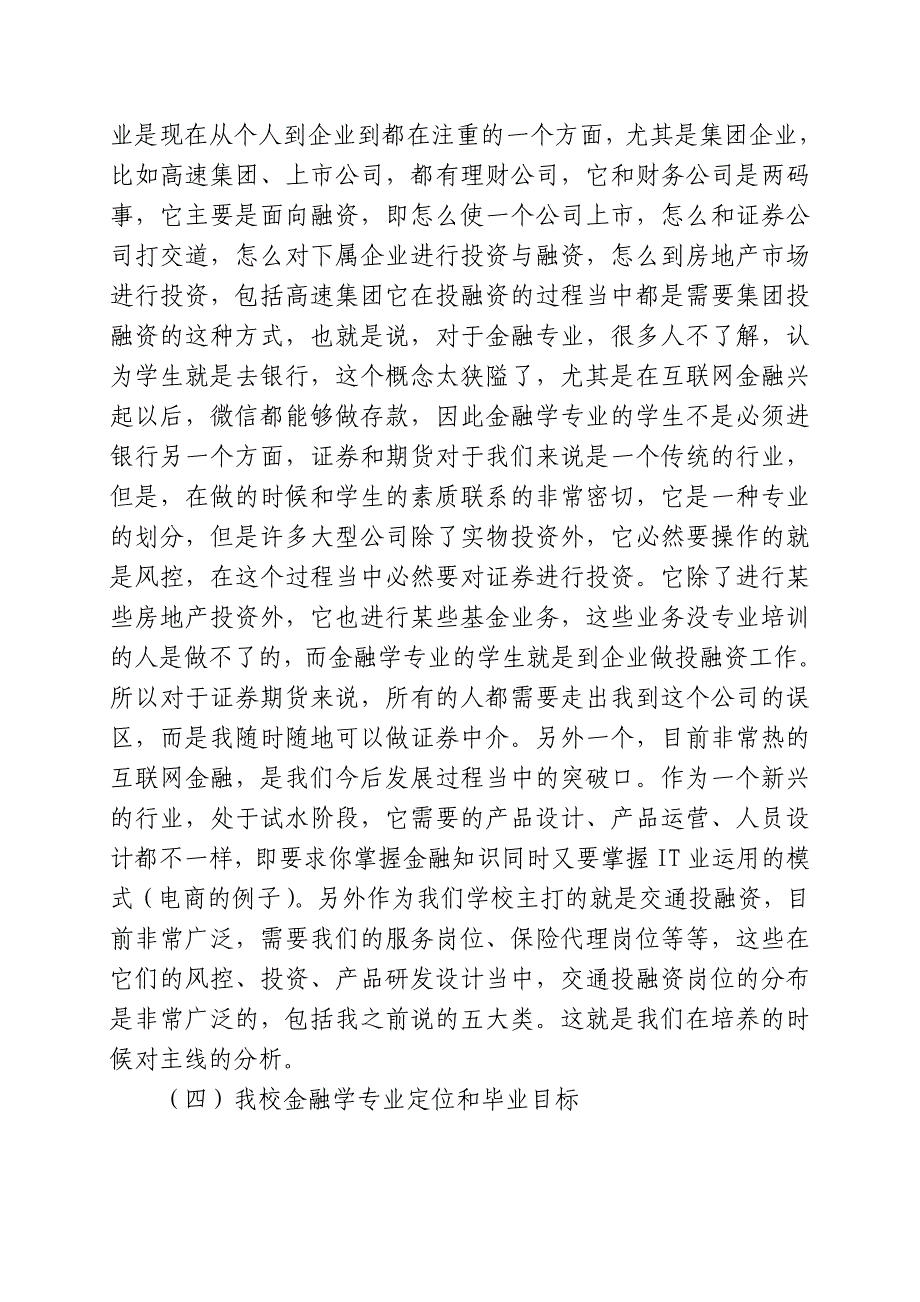 业是现在从个人到企业到都在注重的一个方面，尤其是集团企业，
比如高速集团、上市公司，都有理财公司，它和财务公司是两码
事，它主要是面向融资，即怎么使一个公司上市，怎么和证券公
司打交道，怎么对下属企业进行投资与融资，怎么到房地产市场
进行投资，包括高速集团它在投融资的过程当中都是需要集团投
融资的这种方式，也就是说，对于金融专业，很多人不了解，认
为学生就是去银行，这个概念太狭隘了，尤其是在互联网金融兴
起以后，微信都能够做存款，因此金融学专业的学生不是必须进
银行另一个方面，证券和期货对于我们来说是一个传统的行业，
但是，在做的时候和学生的素质联系的非常密切，它是一种专业
的划分，但是许多大型公司除了实物投资外，它必然要操作的就
是风控，在这个过程当中必然要对证券进行投资。它除了进行某
些房地产投资外，它也进行某些基金业务，这些业务没专业培训
的人是做不了的，而金融学专业的学生就是到企业做投融资工作。
所以对于证券期货来说，所有的人都需要走出我到这个公司的误
区，而是我随时随地可以做证券中介。另外一个，目前非常热的
互联网金融，是我们今后发展过程当中的突破口。作为一个新兴
的行业，处于试水阶段，它需要的产品设计、产品运营、人员设
计都不一样，即要求你掌握金融知识同时又要掌握 IT 业运用的模
式（电商的例子）。另外作为我们学校主打的就是交通投融资，目
前非常广泛，需要我们的服务岗位、保险代理岗位等等，这些在
它们的风控、投资、产品研发设计当中，交通投融资岗位的分布
是非常广泛的，包括我之前说的五大类。这就是我们在培养的时
候对主线的分析。
（四）我校金融学专业定位和毕业目标